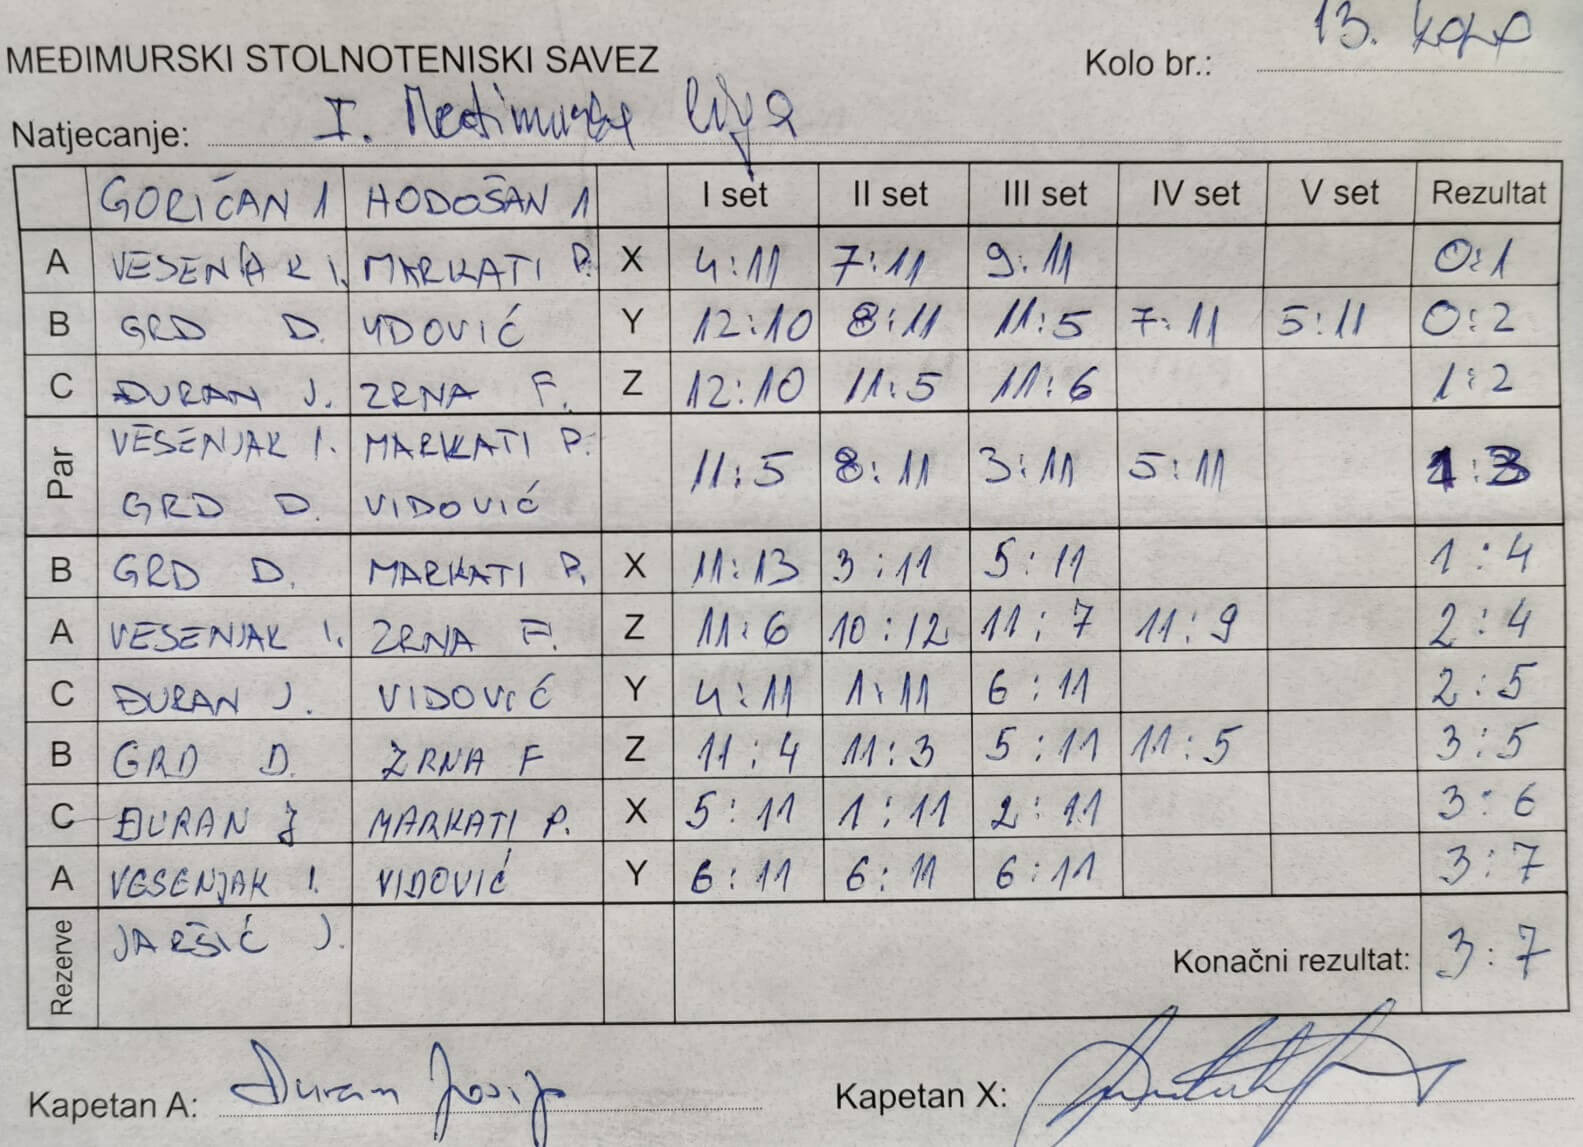 13. kolo
MEĐIMURSKI STOLNOTENISKI SAVEZ Kolo br.:
Natjecanje: I. Međimurska liga
GORIČAN 1 HODOŠAN 1 I set II set III set IV set V set Rezultat
A VESENJAK I. MARKATI P. X 4:11 7:11 9:11 0:1
B GRD D. VIDOVIĆ Y 12:10 8:11 11:5 7:11 5:11 0:2
C ĐURAN J. ZRNA F. Z 12:10 11:5 11:6 1:2
Par VESENJAK I. MARKATI P. 11:5 8:11 3:11 5:11 1:3
GRD D. VIDOVIĆ
B GRD D. MARKATI P. X 11:13 3:11 5:11 1:4
A VESENJAK I. ZRNA F. Z 11:6 10:12 11:7 11:9 2:4
C ĐURAN J. VIDOVIĆ Y 4:11 1:11 6:11 2:5
B GRD D. ZRNA F Z 11:4 11:3 5:11 11:5 3:5
C ĐURAN J MARKATI P. X 5:11 1:11 2:11 3:6
A VESENJAK I. VIDOVIĆ Y 6:11 6:11 6:11 3:7
Rezerve JARŠIĆ J. Konačni rezultat: 3:7
Kapetan A: Đuran Josip Kapetan X: